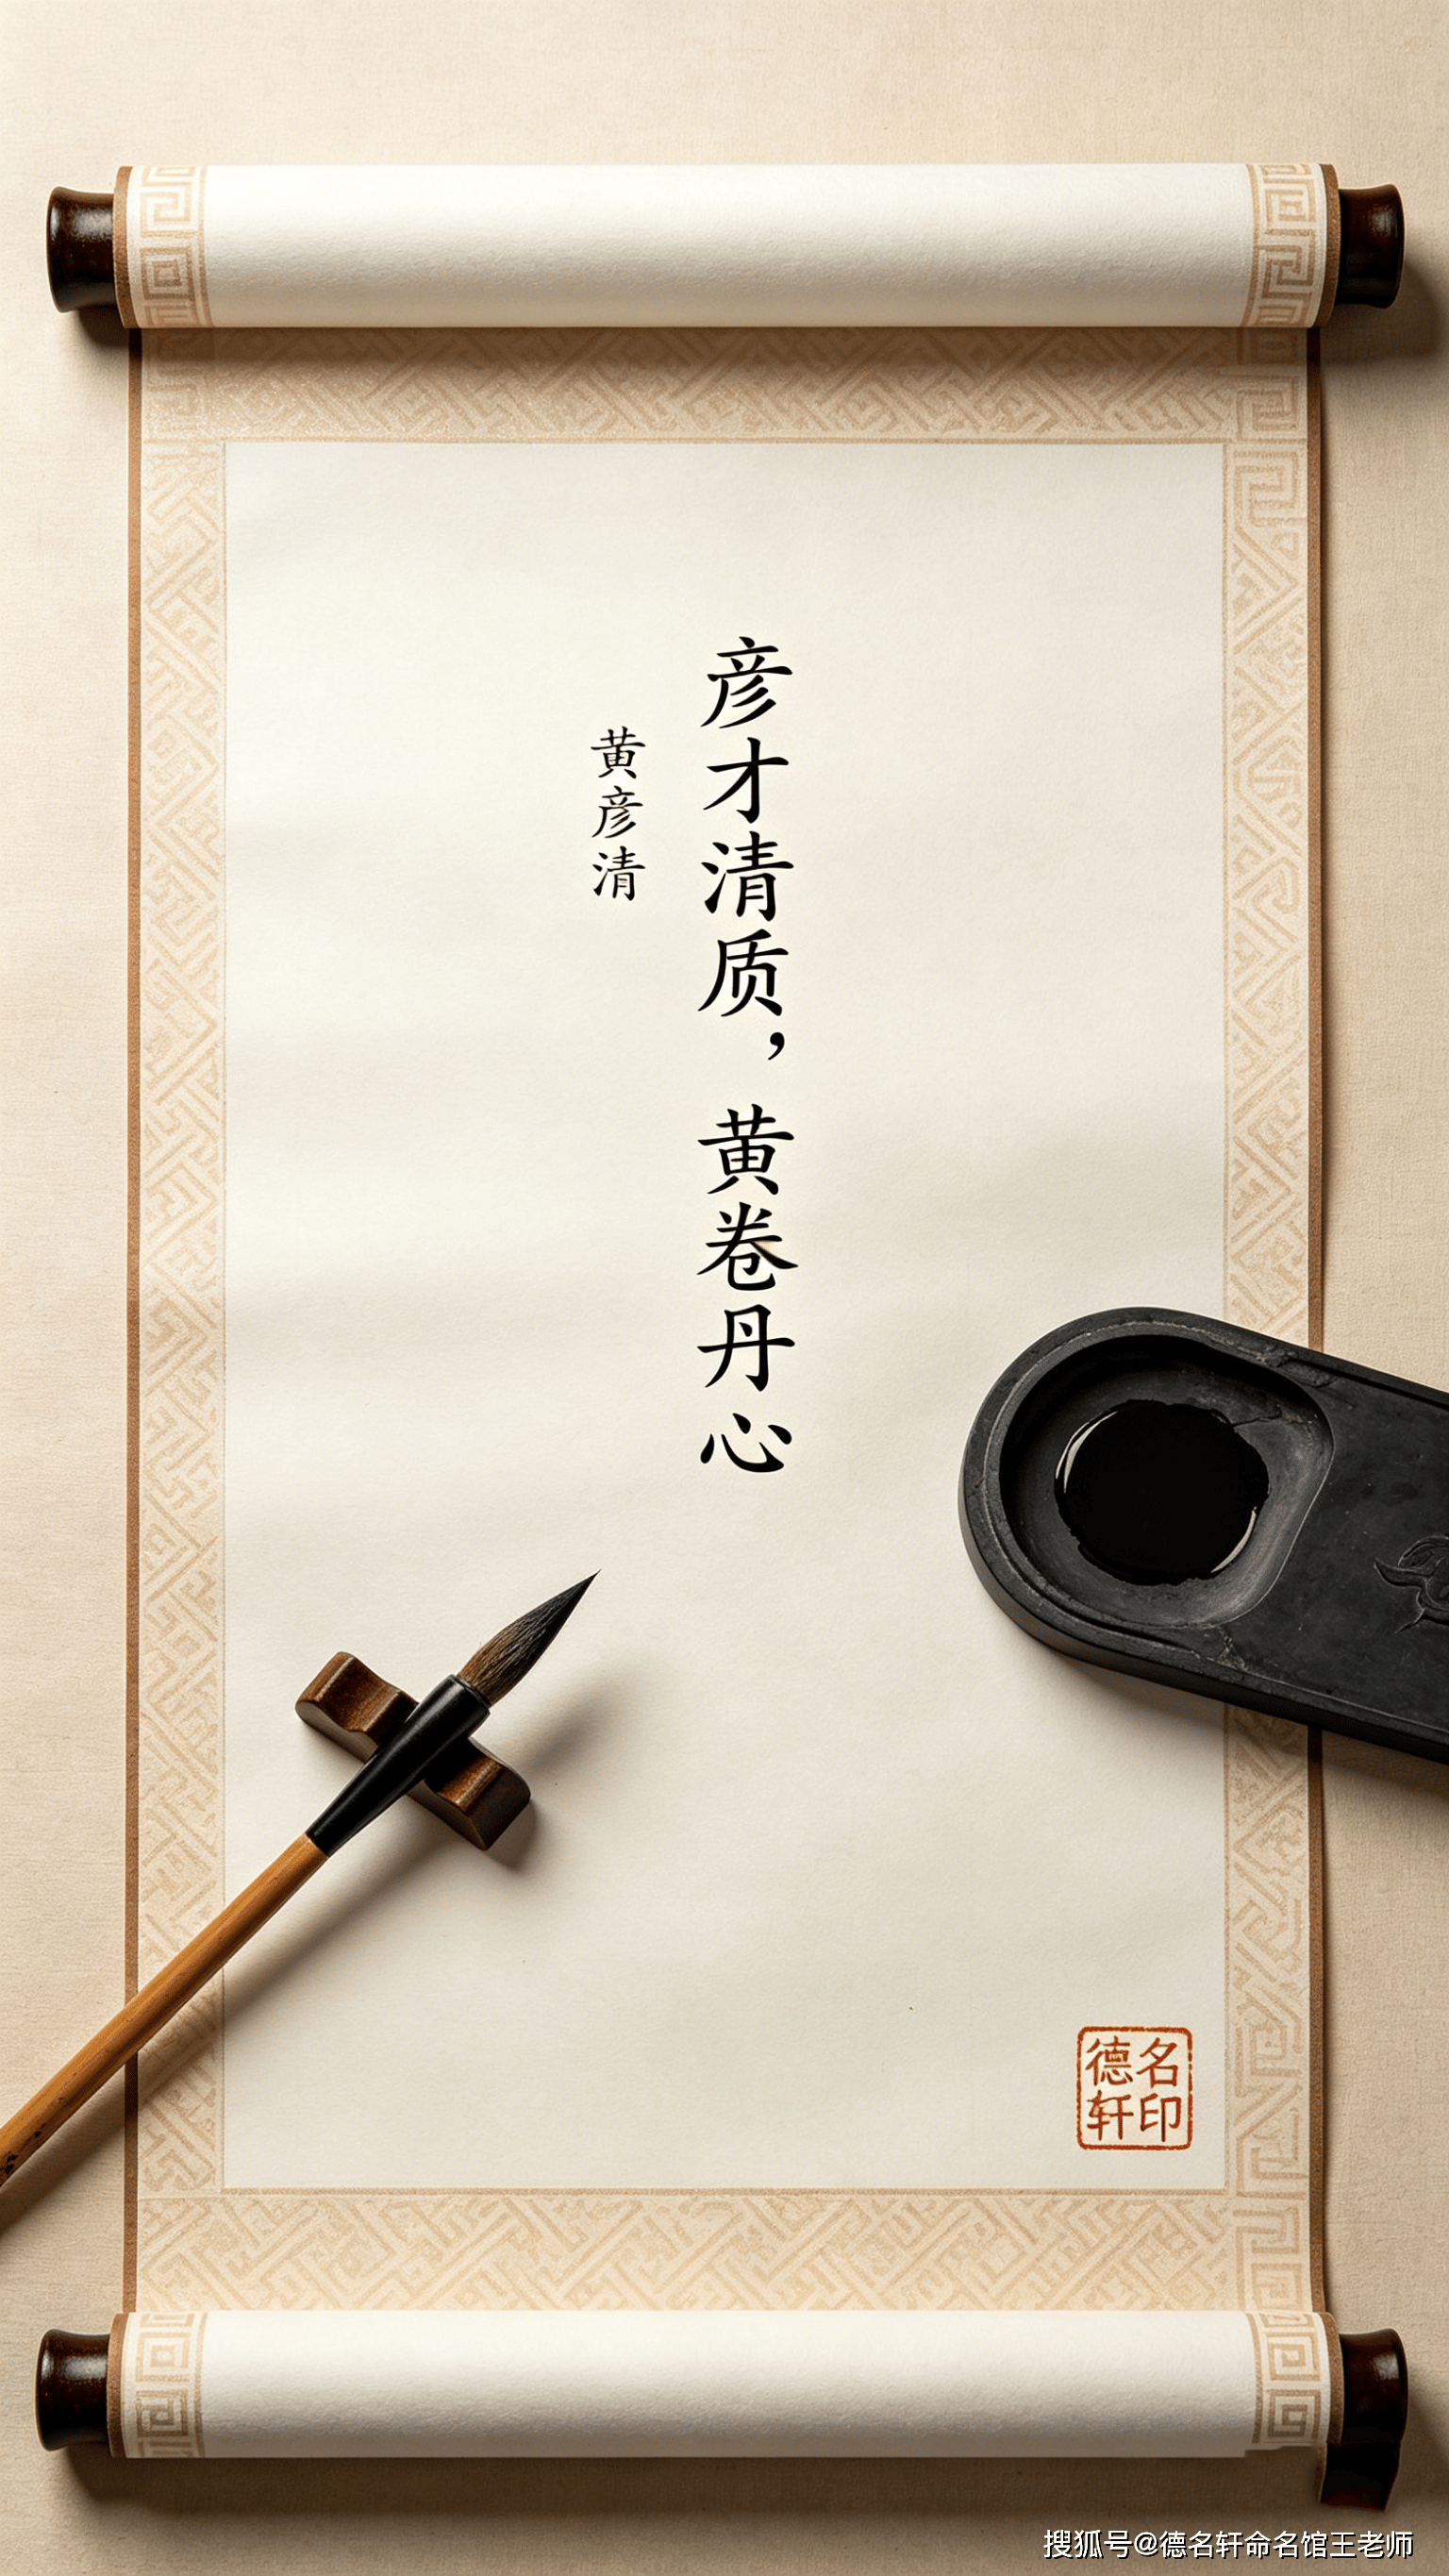 彦才清质，黄卷丹心
黄彦清
德名
轩印
搜狐号@德名轩命名馆王老师